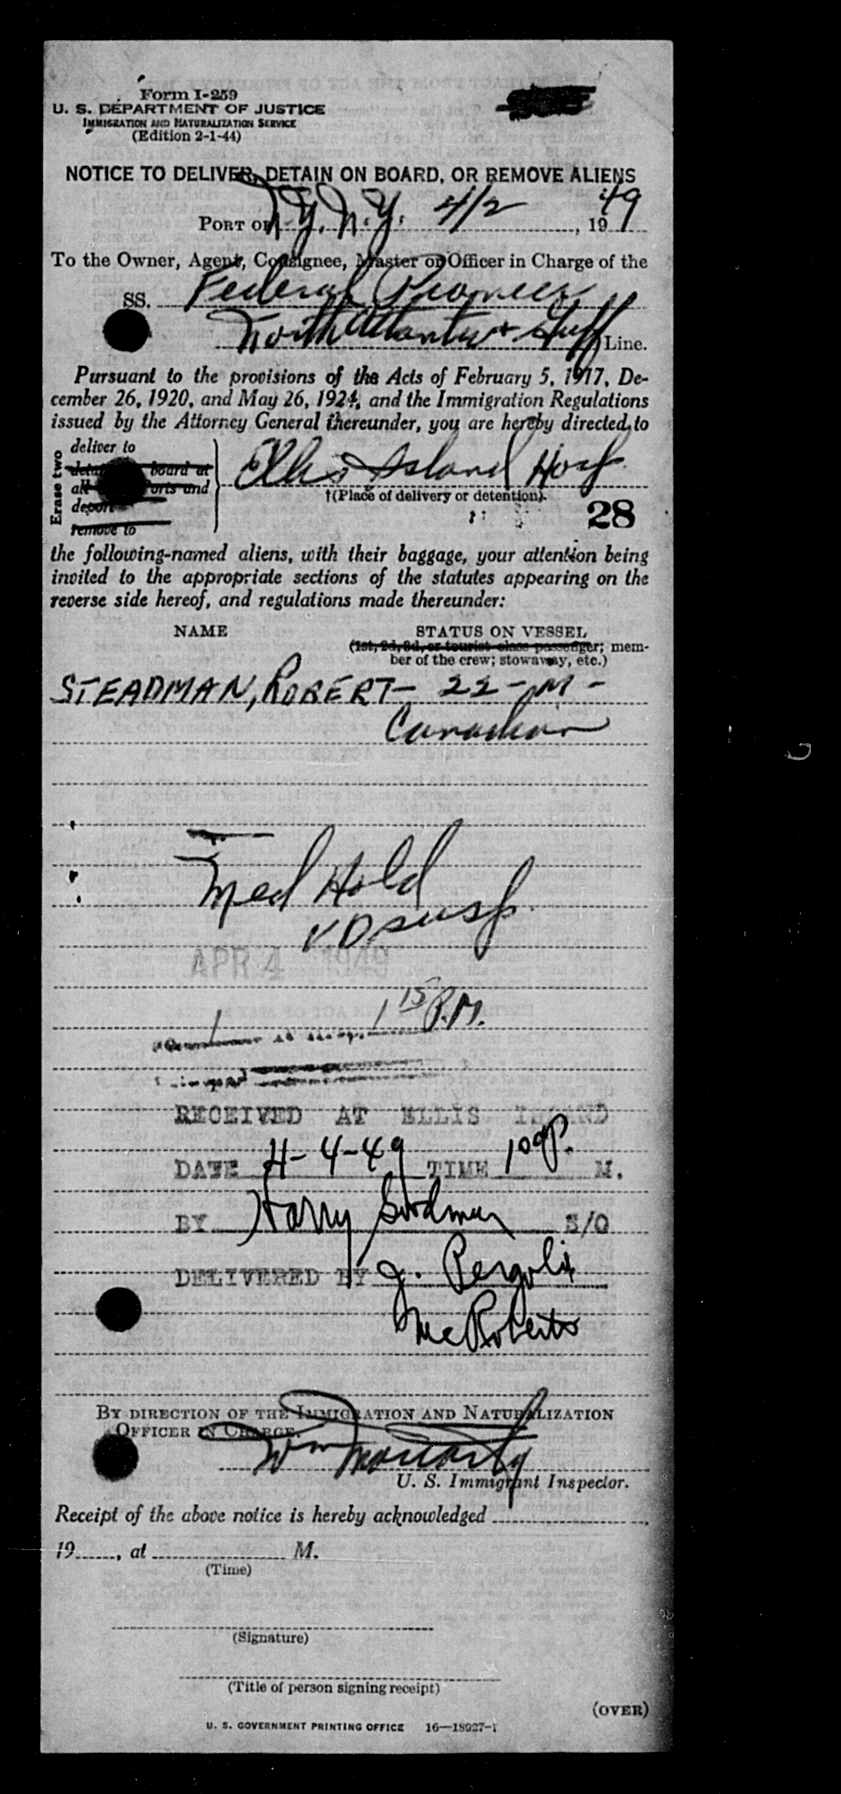 Form I-259
U. S. DEPARTMENT OF JUSTICE
IMMIGRATION AND NATURALIZATION SERVICE
(Edition 2-1-44)
NOTICE TO DELIVER, DETAIN ON BOARD, OR REMOVE ALIENS
PORT OF N.Y. N.Y. 4/2, 1949
To the Owner, Agent, Consignee, Master or Officer in Charge of the
SS. Federal Pioneer
North Atlantic & Gulf Line.
Pursuant to the provisions of the Acts of February 5, 1917, De-
cember 26, 1920, and May 26, 1924, and the Immigration Regulations
issued by the Attorney General thereunder, you are hereby directed to
Erase two
deliver to
board at
orts and
deport
remove to
Ellis Island Hosp
†(Place of delivery or detention).
28
the following-named aliens, with their baggage, your attention being
invited to the appropriate sections of the statutes appearing on the
reverse side hereof, and regulations made thereunder:
NAME STATUS ON VESSEL
(1st, 2d, 3d, or tourist class passenger; mem-
ber of the crew; stowaway, etc.)
STEADMAN, ROBERT - 22 - M -
Canadian
Med Hold
VD susp.
APR 4 1949
1 15 P.M.
RECEIVED AT ELLIS ISLAND
DATE 4-4-49 TIME 1 09 P. M.
BY Harry S/O
DELIVERED BY J. Pergoli
McRoberts
BY DIRECTION OF THE IMMIGRATION AND NATURALIZATION
OFFICER IN CHARGE.
Wm Moriarty
U. S. Immigrant Inspector.
Receipt of the above notice is hereby acknowledged
19, at M.
(Time)
(Signature)
(Title of person signing receipt)
(OVER)
U. S. GOVERNMENT PRINTING OFFICE 16—18027-1